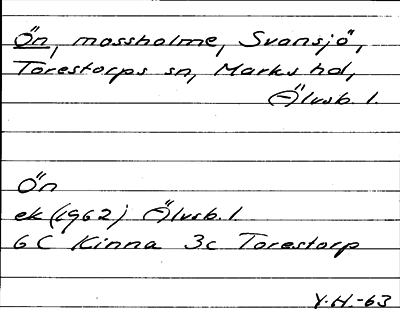 Ön, mossholme, Svansjö,
Torestorps sn, Marks hd,
Älvsb. l.
Ön
ek (1962) Älvsb. l.
6C Kinna 3c Torestorp
Y.H.-63